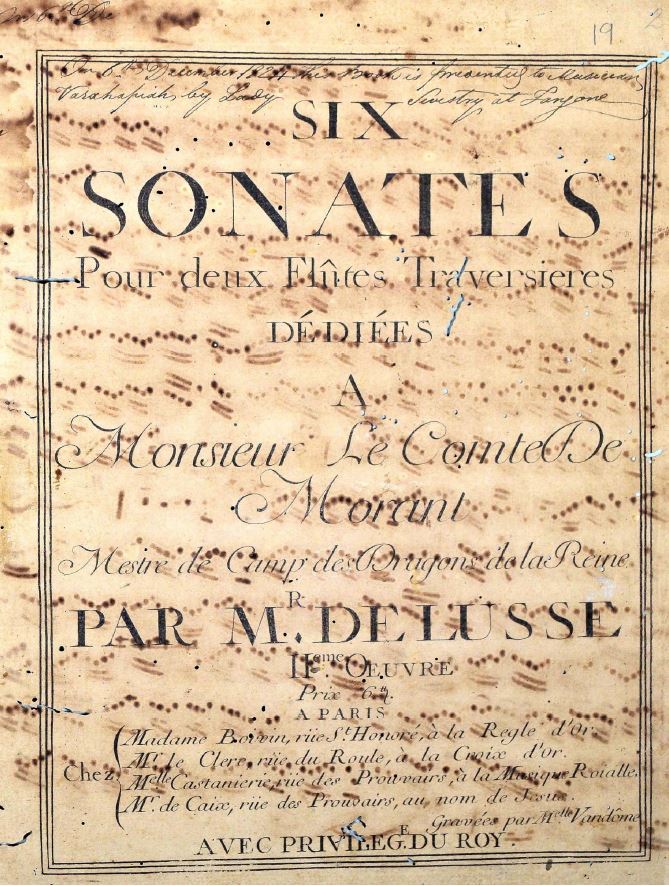 19 2
On 6th December 1824 this Book is presented to Musician
Varahapiah by Lady at
SIX
SONATES
Pour deux Flûtes Traversieres
DÉDIÉES
A
Monsieur Le Comte De
Morant
Mestre de Camp des Dragons de la Reine
PAR MR. DELUSSE
IIeme. OEUVRE
Prix 6tt.
A PARIS
Chez
Madame Boivin, rüe St. Honoré, à la Regle d'Or.
Mr. le Clerc, rüe du Roule, à la Croix d'or.
Melle Castanierie, rue des Prouvairs, à la Musique Roïalle.
Mr. de Caix, rüe des Prouvairs, au nom de Jesus.
Gravées par Melle Vandôme
AVEC PRIVILEG.E DU ROY.